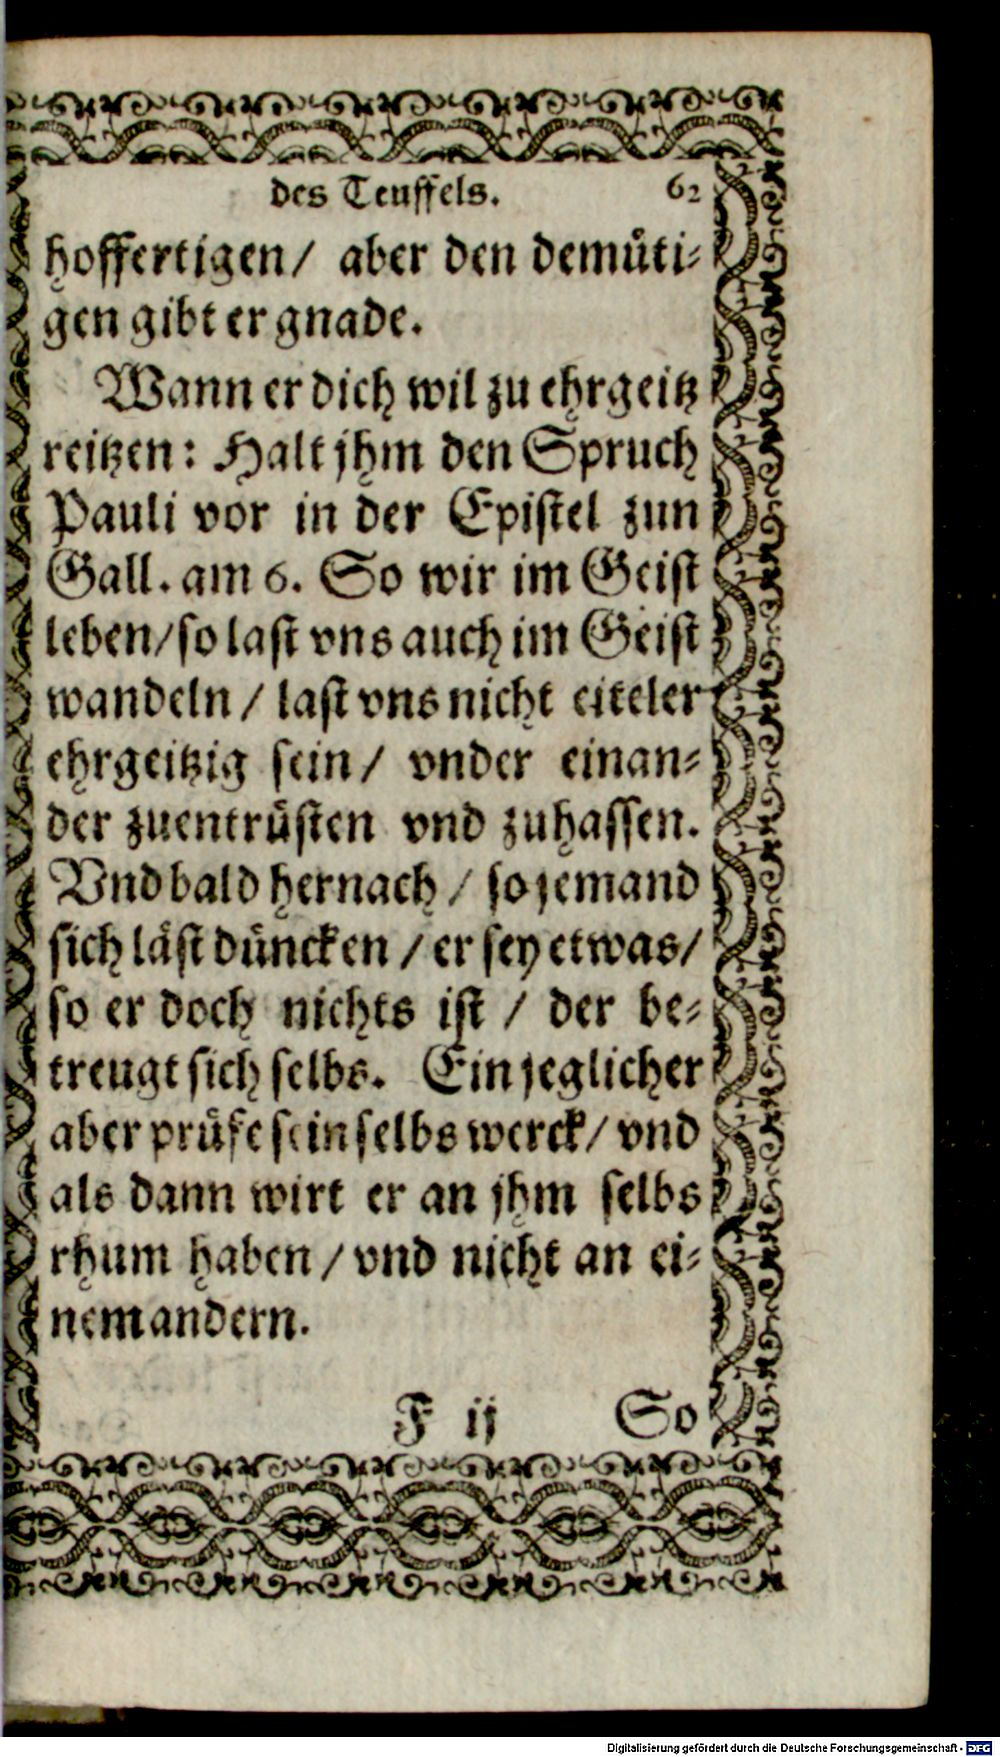 des Teuffels. 62
hoffertigen/ aber den demüti-
gen gibt er gnade.
Wann er dich wil zu ehrgeitz
reitzen: Halt jhm den Spruch
Pauli vor in der Epistel zun
Gall. am 6. So wir im Geist
leben/ so last vns auch im Geist
wandeln / last vns nicht eiteler
ehrgeitzig sein/ vnder einan-
der zuentrüsten vnd zuhassen.
Vnd bald hernach / so jemand
sich läst düncken / er sey etwas/
so er doch nichts ist / der be-
treugt sich selbs. Ein jeglicher
aber prüfe sein selbs werck/ vnd
als dann wirt er an jhm selbs
rhum haben / vnd nicht an ei-
nem andern.
F ij So
Digitalisierung gefördert durch die Deutsche Forschungsgemeinschaft - DFG